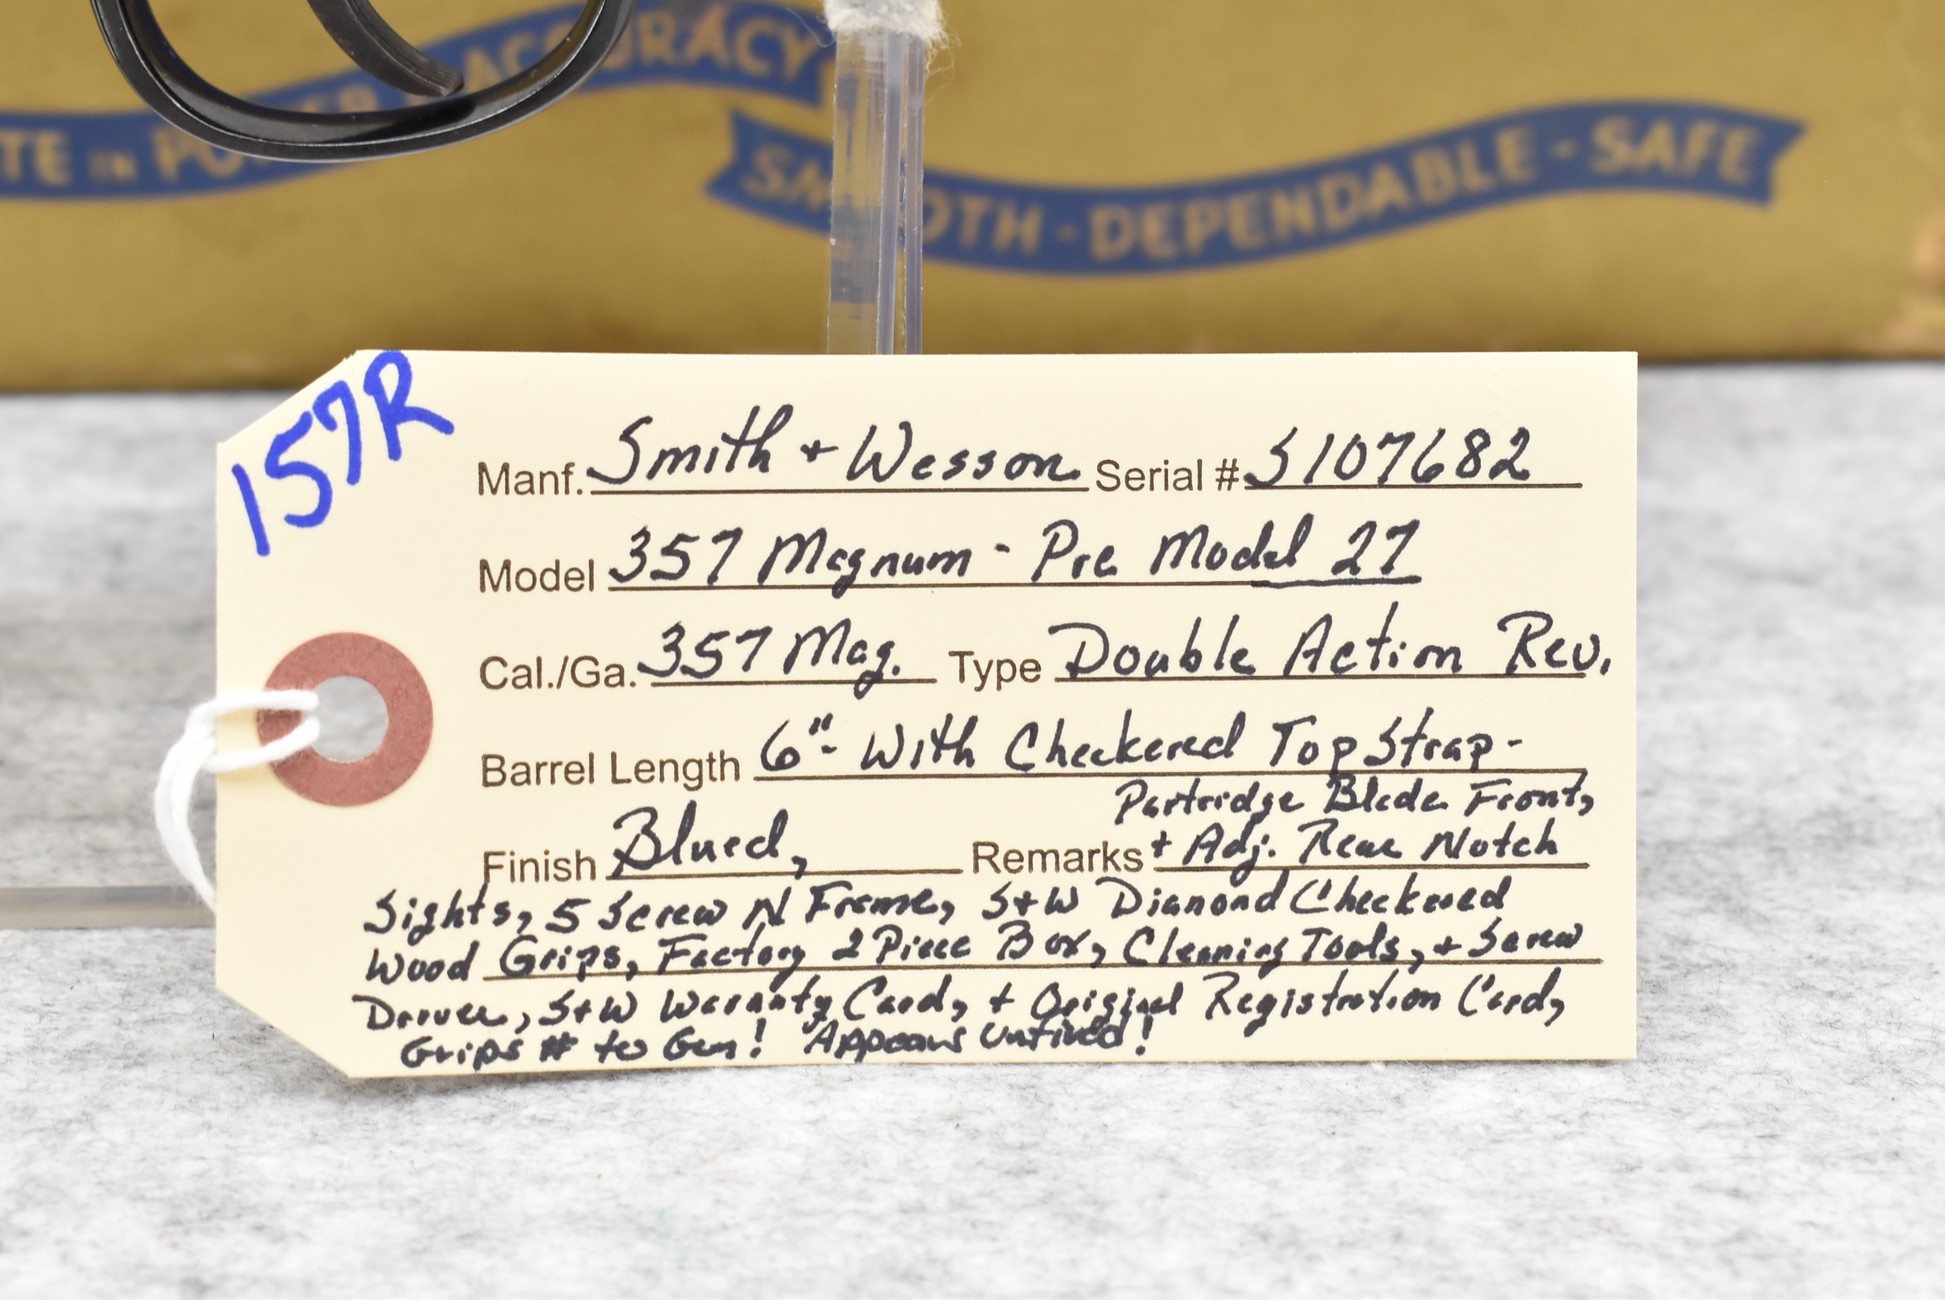 TE IN POWER & ACCURACY
SMOOTH - DEPENDABLE - SAFE
157R
Manf. Smith + Wesson Serial # S107682
Model 357 Magnum - Pre Model 27
Cal./Ga. 357 Mag. Type Double Action Rev.
Barrel Length 6"- With Checkered Top Strap -
Partridge Blade Front,
Finish Blued, Remarks + Adj. Rear Notch
Sights, 5 Screw N Frame, S+W Dianond Checkered
Wood Grips, Factory 2 Piece Box, Cleaning Tools, + Screw
Driver, S+W Warranty Card, + Original Registration Card,
Grips # to Gun! "Appears Unfired!